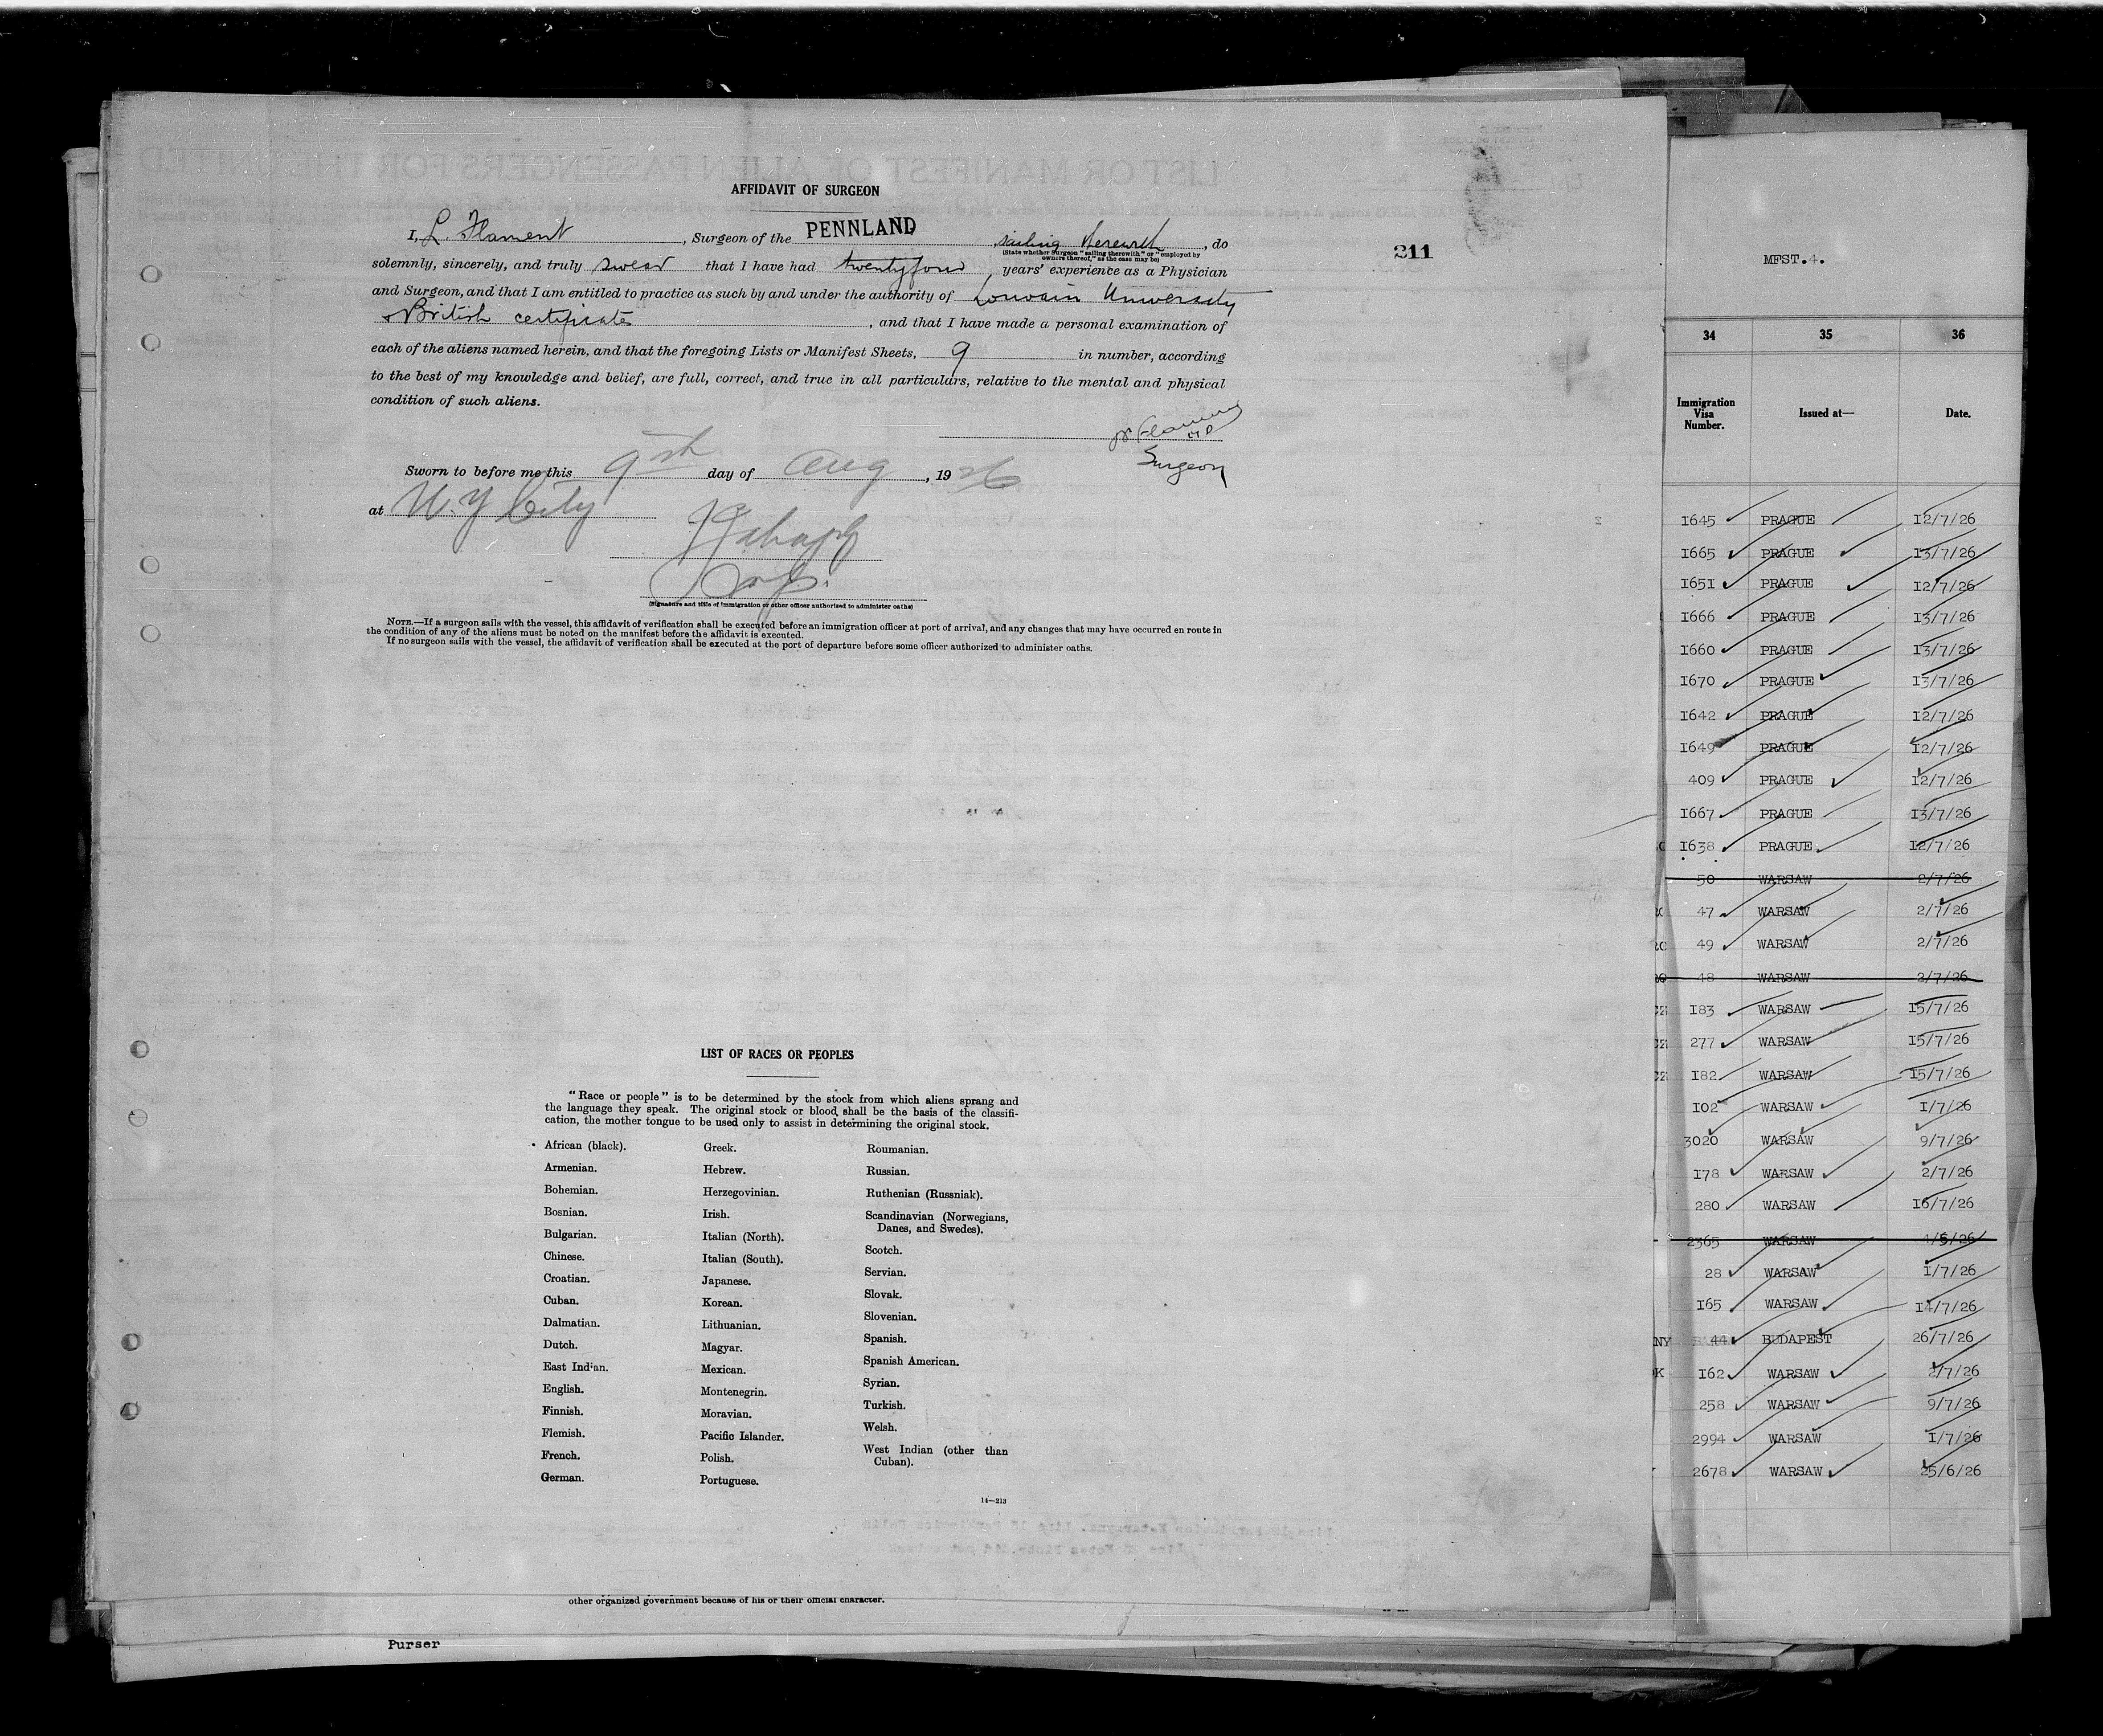 AFFIDAVIT OF SURGEON
I, L. Flament, Surgeon of the PENNLAND, sailing therewith, do
(State whether surgeon "sailing therewith" or "employed by
owners thereof," as the case may be)
solemnly, sincerely, and truly swear that I have had twentyfour years' experience as a Physician
and Surgeon, and that I am entitled to practice as such by and under the authority of Louvain University
British certificates, and that I have made a personal examination of
each of the aliens named herein, and that the foregoing Lists or Manifest Sheets, 9 in number, according
to the best of my knowledge and belief, are full, correct, and true in all particulars, relative to the mental and physical
condition of such aliens.
Surgeon
Sworn to before me this 9th day of Aug, 1926
at N.Y City
(Signature and title of immigration or other officer authorized to administer oaths)
NOTE.—If a surgeon sails with the vessel, this affidavit of verification shall be executed before an immigration officer at port of arrival, and any changes that may have occurred en route in
the condition of any of the aliens must be noted on the manifest before the affidavit is executed.
If no surgeon sails with the vessel, the affidavit of verification shall be executed at the port of departure before some officer authorized to administer oaths.
211
LIST OF RACES OR PEOPLES
"Race or people" is to be determined by the stock from which aliens sprang and
the language they speak. The original stock or blood shall be the basis of the classifi-
cation, the mother tongue to be used only to assist in determining the original stock.
African (black).
Armenian.
Bohemian.
Bosnian.
Bulgarian.
Chinese.
Croatian.
Cuban.
Dalmatian.
Dutch.
East Indian.
English.
Finnish.
Flemish.
French.
German.
Greek.
Hebrew.
Herzegovinian.
Irish.
Italian (North).
Italian (South).
Japanese.
Korean.
Lithuanian.
Magyar.
Mexican.
Montenegrin.
Moravian.
Pacific Islander.
Polish.
Portuguese.
Roumanian.
Russian.
Ruthenian (Russniak).
Scandinavian (Norwegians,
Danes, and Swedes).
Scotch.
Servian.
Slovak.
Slovenian.
Spanish.
Spanish American.
Syrian.
Turkish.
Welsh.
West Indian (other than
Cuban).
14—213
other organized government because of his or their official character.
Purser
MFST.4.
34 35 36
Immigration
Visa
Number.
Issued at—
Date.
1645 PRAGUE 12/7/26
1665 PRAGUE 13/7/26
1651 PRAGUE 12/7/26
1666 PRAGUE 13/7/26
1660 PRAGUE 13/7/26
1670 PRAGUE 13/7/26
1642 PRAGUE 12/7/26
1649 PRAGUE 12/7/26
409 PRAGUE 12/7/26
1667 PRAGUE 13/7/26
1638 PRAGUE 12/7/26
50 WARSAW 2/7/26
47 WARSAW 2/7/26
49 WARSAW 2/7/26
48 WARSAW 2/7/26
183 WARSAW 15/7/26
277 WARSAW 15/7/26
182 WARSAW 15/7/26
102 WARSAW 1/7/26
3020 WARSAW 9/7/26
178 WARSAW 2/7/26
280 WARSAW 16/7/26
2365 WARSAW
28 WARSAW 1/7/26
165 WARSAW 14/7/26
44 BUDAPEST 26/7/26
162 WARSAW 2/7/26
258 WARSAW 9/7/26
2994 WARSAW 1/7/26
2678 WARSAW 25/6/26